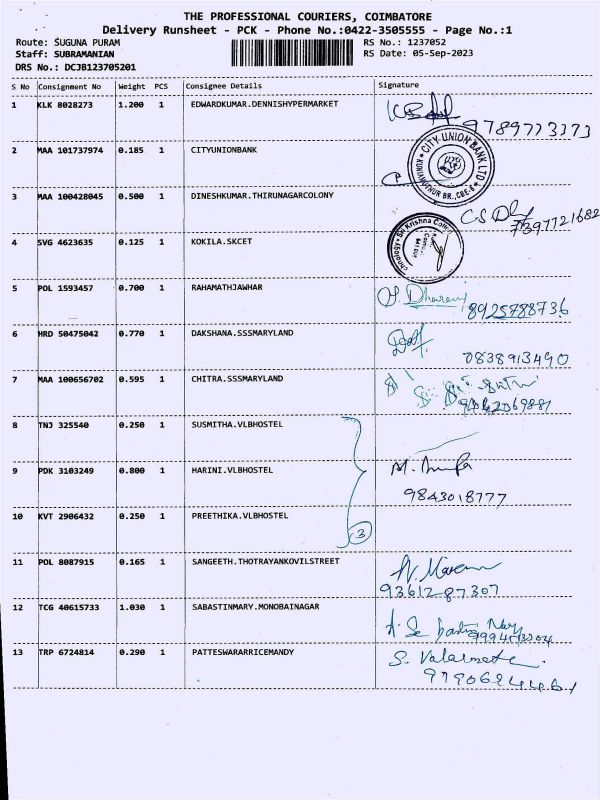 THE PROFESSIONAL COURIERS, COIMBATORE
Delivery Runsheet - PCK - Phone No.:0422-3505555 - Page No.:1
Route: SUGUNA PURAM RS No.: 1237052
Staff: SUBRAMANIAN RS Date: 05-Sep-2023
DRS No.: DCJB123705201
S No Consignment No Weight PCS Consignee Details Signature
1 KLK 8028273 1.200 1 EDWARDKUMAR.DENNISHYPERMARKET
9789773173
2 MAA 101737974 0.185 1 CITYUNIONBANK
CITY UNION BANK LTD
BR., CBE-8
3 MAA 100428045 0.500 1 DINESHKUMAR.THIRUNAGARCOLONY
7397721682
4 SVG 4623635 0.125 1 KOKILA.SKCET
Sri Krishna
5 POL 1593457 0.700 1 RAHAMATHJAWHAR
Dharani
8925788736
6 HRD 50475042 0.770 1 DAKSHANA.SSSMARYLAND
7 MAA 100656702 0.595 1 CHITRA.SSSMARYLAND
8 TNJ 325540 0.250 1 SUSMITHA.VLBHOSTEL
9 PDK 3103249 0.800 1 HARINI.VLBHOSTEL
9843018777
10 KVT 2906432 0.250 1 PREETHIKA.VLBHOSTEL
3
11 POL 8087915 0.165 1 SANGEETH.THOTRAYANKOVILSTREET
9361287307
12 TCG 40615733 1.030 1 SABASTINMARY.MONOBAINAGAR
13 TRP 6724814 0.290 1 PATTESWARARRICEMANDY